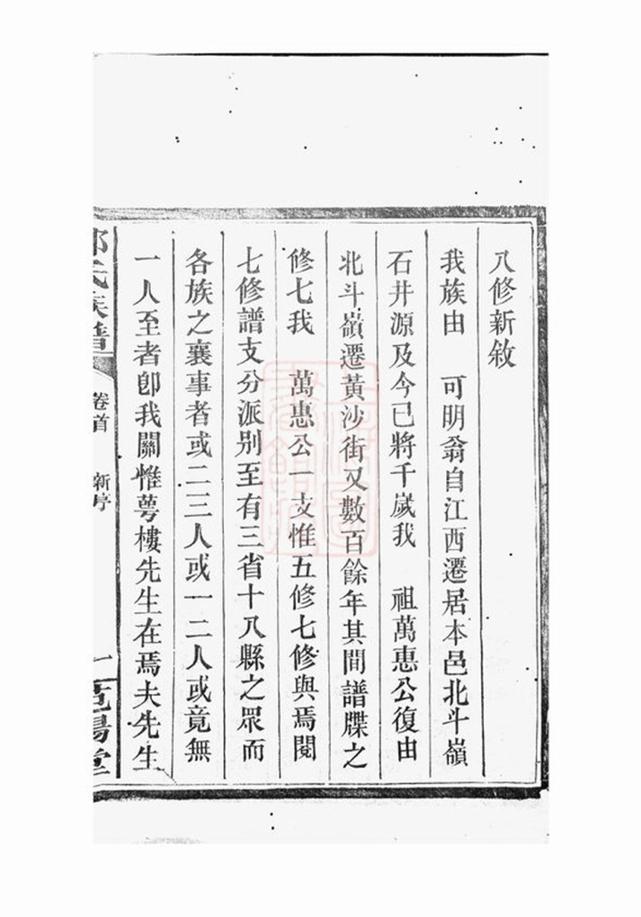 八修新敘
我族由　可明翁自江西遷居本邑北斗嶺
石井源及今已將千歲我　祖萬惠公復由
北斗嶺遷黃沙街又數百餘年其間譜牒之
修七我　萬惠公一支惟五修七修與焉閱
七修譜支分派別至有三省十八縣之眾而
各族之襄事者或二三人或一二人或竟無
一人至者卽我關惟蕚樓先生在焉夫先生
氏族譜
卷首
新序
一
陽堂